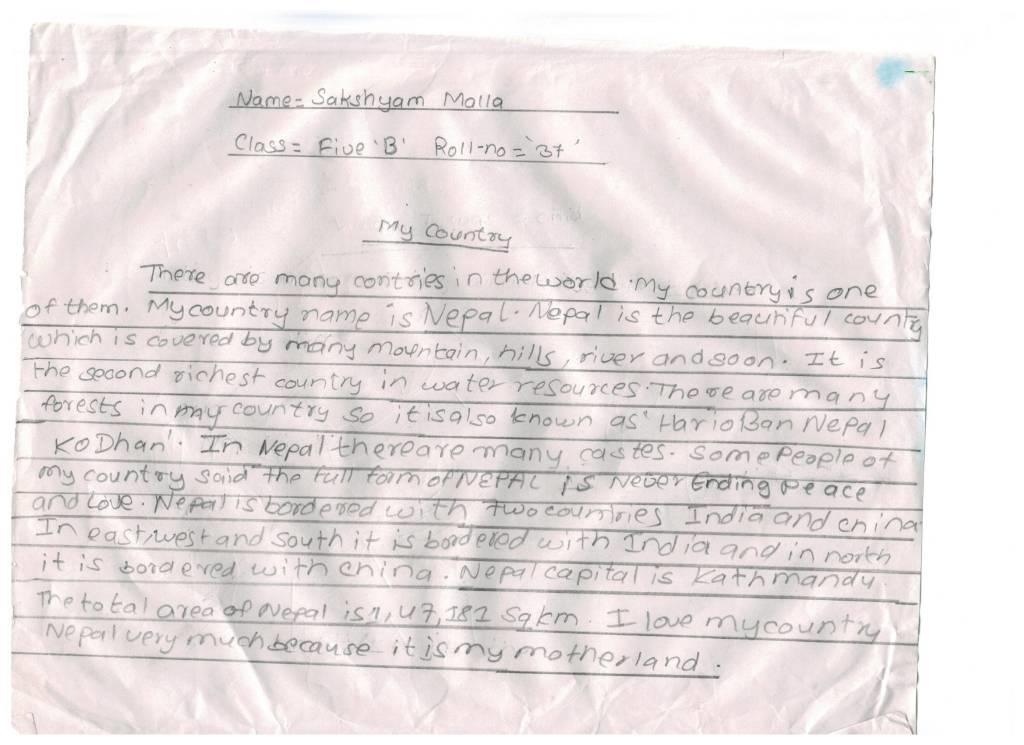 Name = Sakshyam Malla
Class = Five 'B' Roll-no = '37'
My Country
There are many contries in the world. My country is one
of them. My country name is Nepal. Nepal is the beautiful country
which is covered by many mountain, hills, river and soon. It is
the second richest country in water resources. There are many
forests in my country so it is also known as 'Hario Ban Nepal
Ko Dhan'. In Nepal there are many castes. Some people of
my country said the full form of NEPAL is Never Ending peace
and Love. Nepal is bordered with two countries India and china
In east, west and south it is bordered with India and in north
it is bordered with china. Nepal capital is Kathmandu.
The total area of Nepal is 1,47,181 sq km. I love my country
Nepal very much because it is my motherland.